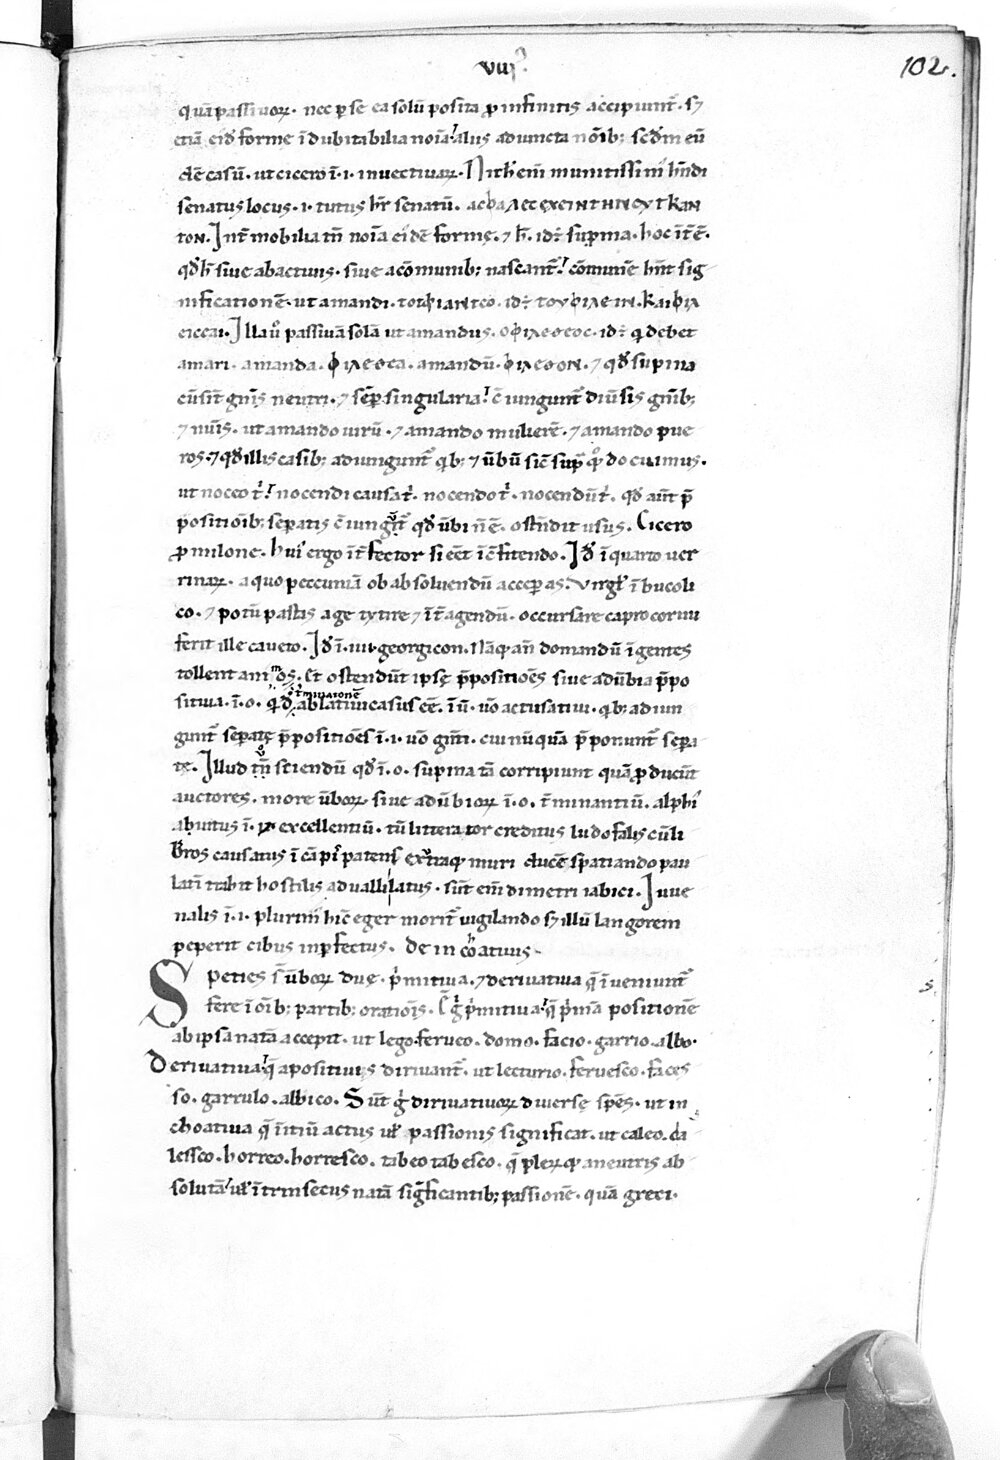 vııı.
102.
quā passiuoꝝ. nec p̱ se ea solū posita ꝓ infinitis accipiunt̄. sƺ
etiā eıdē forme ī dubitabilia noīa! alus adiuncta nōib; sed̄m eū
dē casū. ut cicero ī .i. inuectiuaꝝ. Nichł em̄ munitissimi hn̄di
senatus locus .i. tutus hr̄ senatū.
ton. Int̄ mobilia tn̄ noīa eıdē formę. ⁊ h̄. id÷ supina. hoc īt̄ ē.
qd̄ h̄ siue ab actiuis. siue a cōmunib; nascant̄! cōmunē hn̄t sig
nificationē. ut amandi. id÷ τουφιλειν. και φιλ
ειcαι. Illa ů passiuā solā ut amandus. οφιλεθεοc. id÷ q̇ debet
amari. amanda. φιλεθεα. amandū. φιλεθον. ⁊ qd̄ supina
cū sint gn̄is neutri. ⁊ sēp̱ singularia! c̄ iungunt̄ diūsis gn̄ib;
⁊ nūis. ut amando uirū. ⁊ amando mulierē. ⁊ amando pue
ros. ⁊ qd̄ illis casib; adiungunt̄ q̇b; ⁊ ūbū sic̄ sup̱ q̊ docuimus.
ut noceo t̄! nocendi causa t̄. nocendo t̄. nocendū t̄. qd̄ aūt p̄
positiōib; sep̱atis c̄iungūt̄ qd̄ ūbi n̄ ē. ostn̄dit usus. Cicero
ꝓ milone. hui' ergo īt̄fector si eēt ī c̄fitendo. Id̄ ī quarto uer
rinaꝝ. a quo peccuniā ob absoluendū accep̱as. Virgł ī bucoli
co. ⁊ potū pastas age tytire ⁊ īt̄ agendū. occursare capro cornu
ferit ille caueto. Id̄ ī .iııı. georgicon. Nāq; an̄ domandū īgentes
tollent animos. Et ostendūt ipsę p̄positiōes siue adūbia p̄po
sitiua .ī .o. qd̄ t̄minationē ablatiui casus eē. ī ū. ůo actusatiui. q̇b; adiun
gunt̄ sep̱atę p̄positiōes ī .i. ůo gīti. cui nūquā p̄ponunt̄ sep̱a
tę. Illud tn̄ ů sciendū qd̄ ī .o. supina tā corripiunt quā ꝓducūt
auctores. more ūboꝝ siue adūbioꝝ ī .o. t̄minantiū. alphi
abuitus ī excellentiū. tū litterator creditus ludo falis cūli
bros causatus ī cāpi' patens ext̄ aq; muri ducē spatiando pau
latī trahit hostilis ad uallı latus. sūt em̄ dimetri iabici. Iuue
nalis ī .i. plurim' hic̄ eger morit̄ uigilando sƺ illū langorem
peperit cibus inp̱fectus. de incōatiuis.
Speties s̄ ūboꝝ duę. p̄mitiua. ⁊ deriuatiua q̄ ī ueniunt̄
fere ī oīb; partib; oratiōis. C̄ ḡ p̄mitiua! q̄ p̄mā positionē
ab ipsa natā accepit. ut lego. ferueo. domo. facio. garrio. albo.
Deriuatiua! q̄ a positiuis diriuant̄. ut lecturio. feruesco. faces
so. garrulo. albico. Sūt ḡ diriuatiuoꝝ diuersę sp̄es. ut in
choatiua q̄ īitiū actus uł passionis significat. ut caleo. ca
lesco. horreo. horresco. tabeo tabesco. q̄ pleꝝq; a neutris ab
solutā! uł ītrinsecus natā sig̅ficantib; passionē. quā greci.